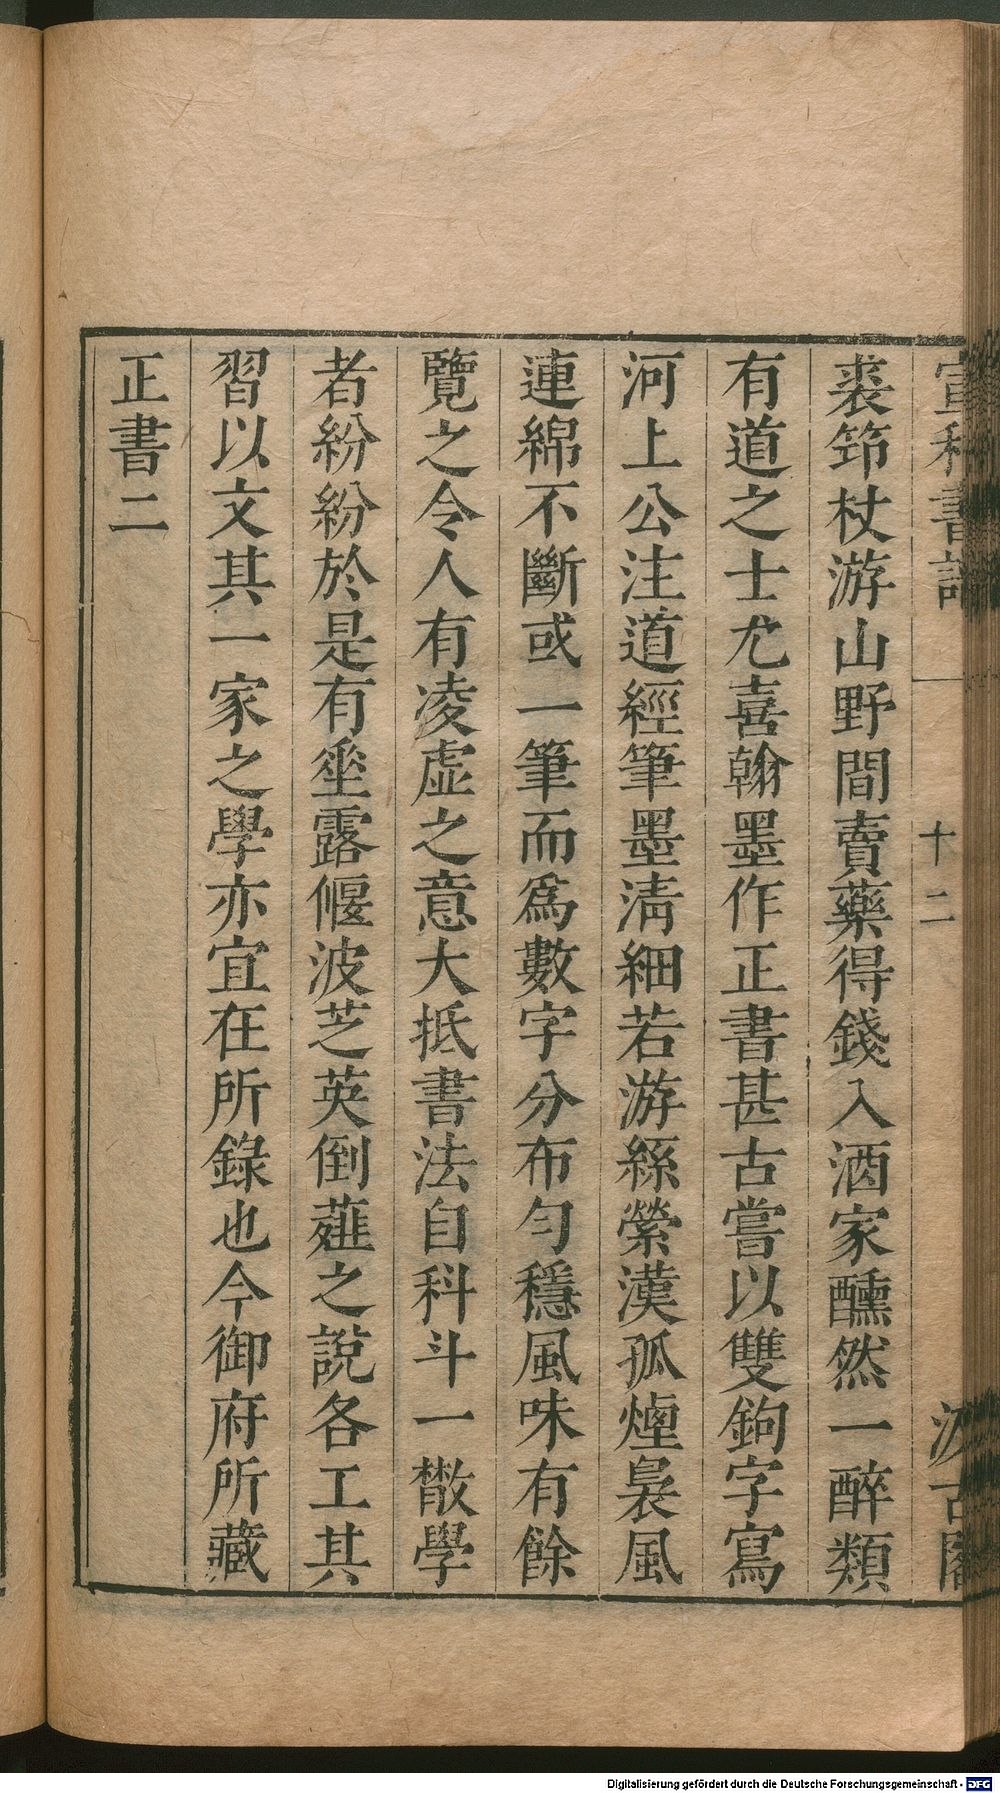 宣和書譜　十二　汲古閣
裘笻杖游山野間賣藥得錢入酒家醺然一醉類
有道之士尤喜翰墨作正書甚古嘗以雙鉤字寫
河上公注道經筆墨清細若游絲縈漢孤煙裊風
連綿不斷或一筆而爲數字分布勻穩風味有餘
覽之令人有凌虛之意大抵書法自科斗一散學
者紛紛於是有垂露偃波芝英倒薤之說各工其
習以文其一家之學亦宜在所錄也今御府所藏
正書二
Digitalisierung gefördert durch die Deutsche Forschungsgemeinschaft - DFG